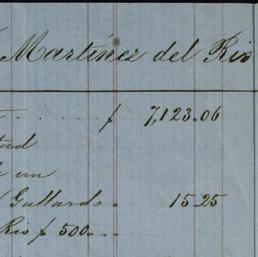 Martínez del Rio
$ 7,123.06
un
Gallardo 15 25
Rio $ 500